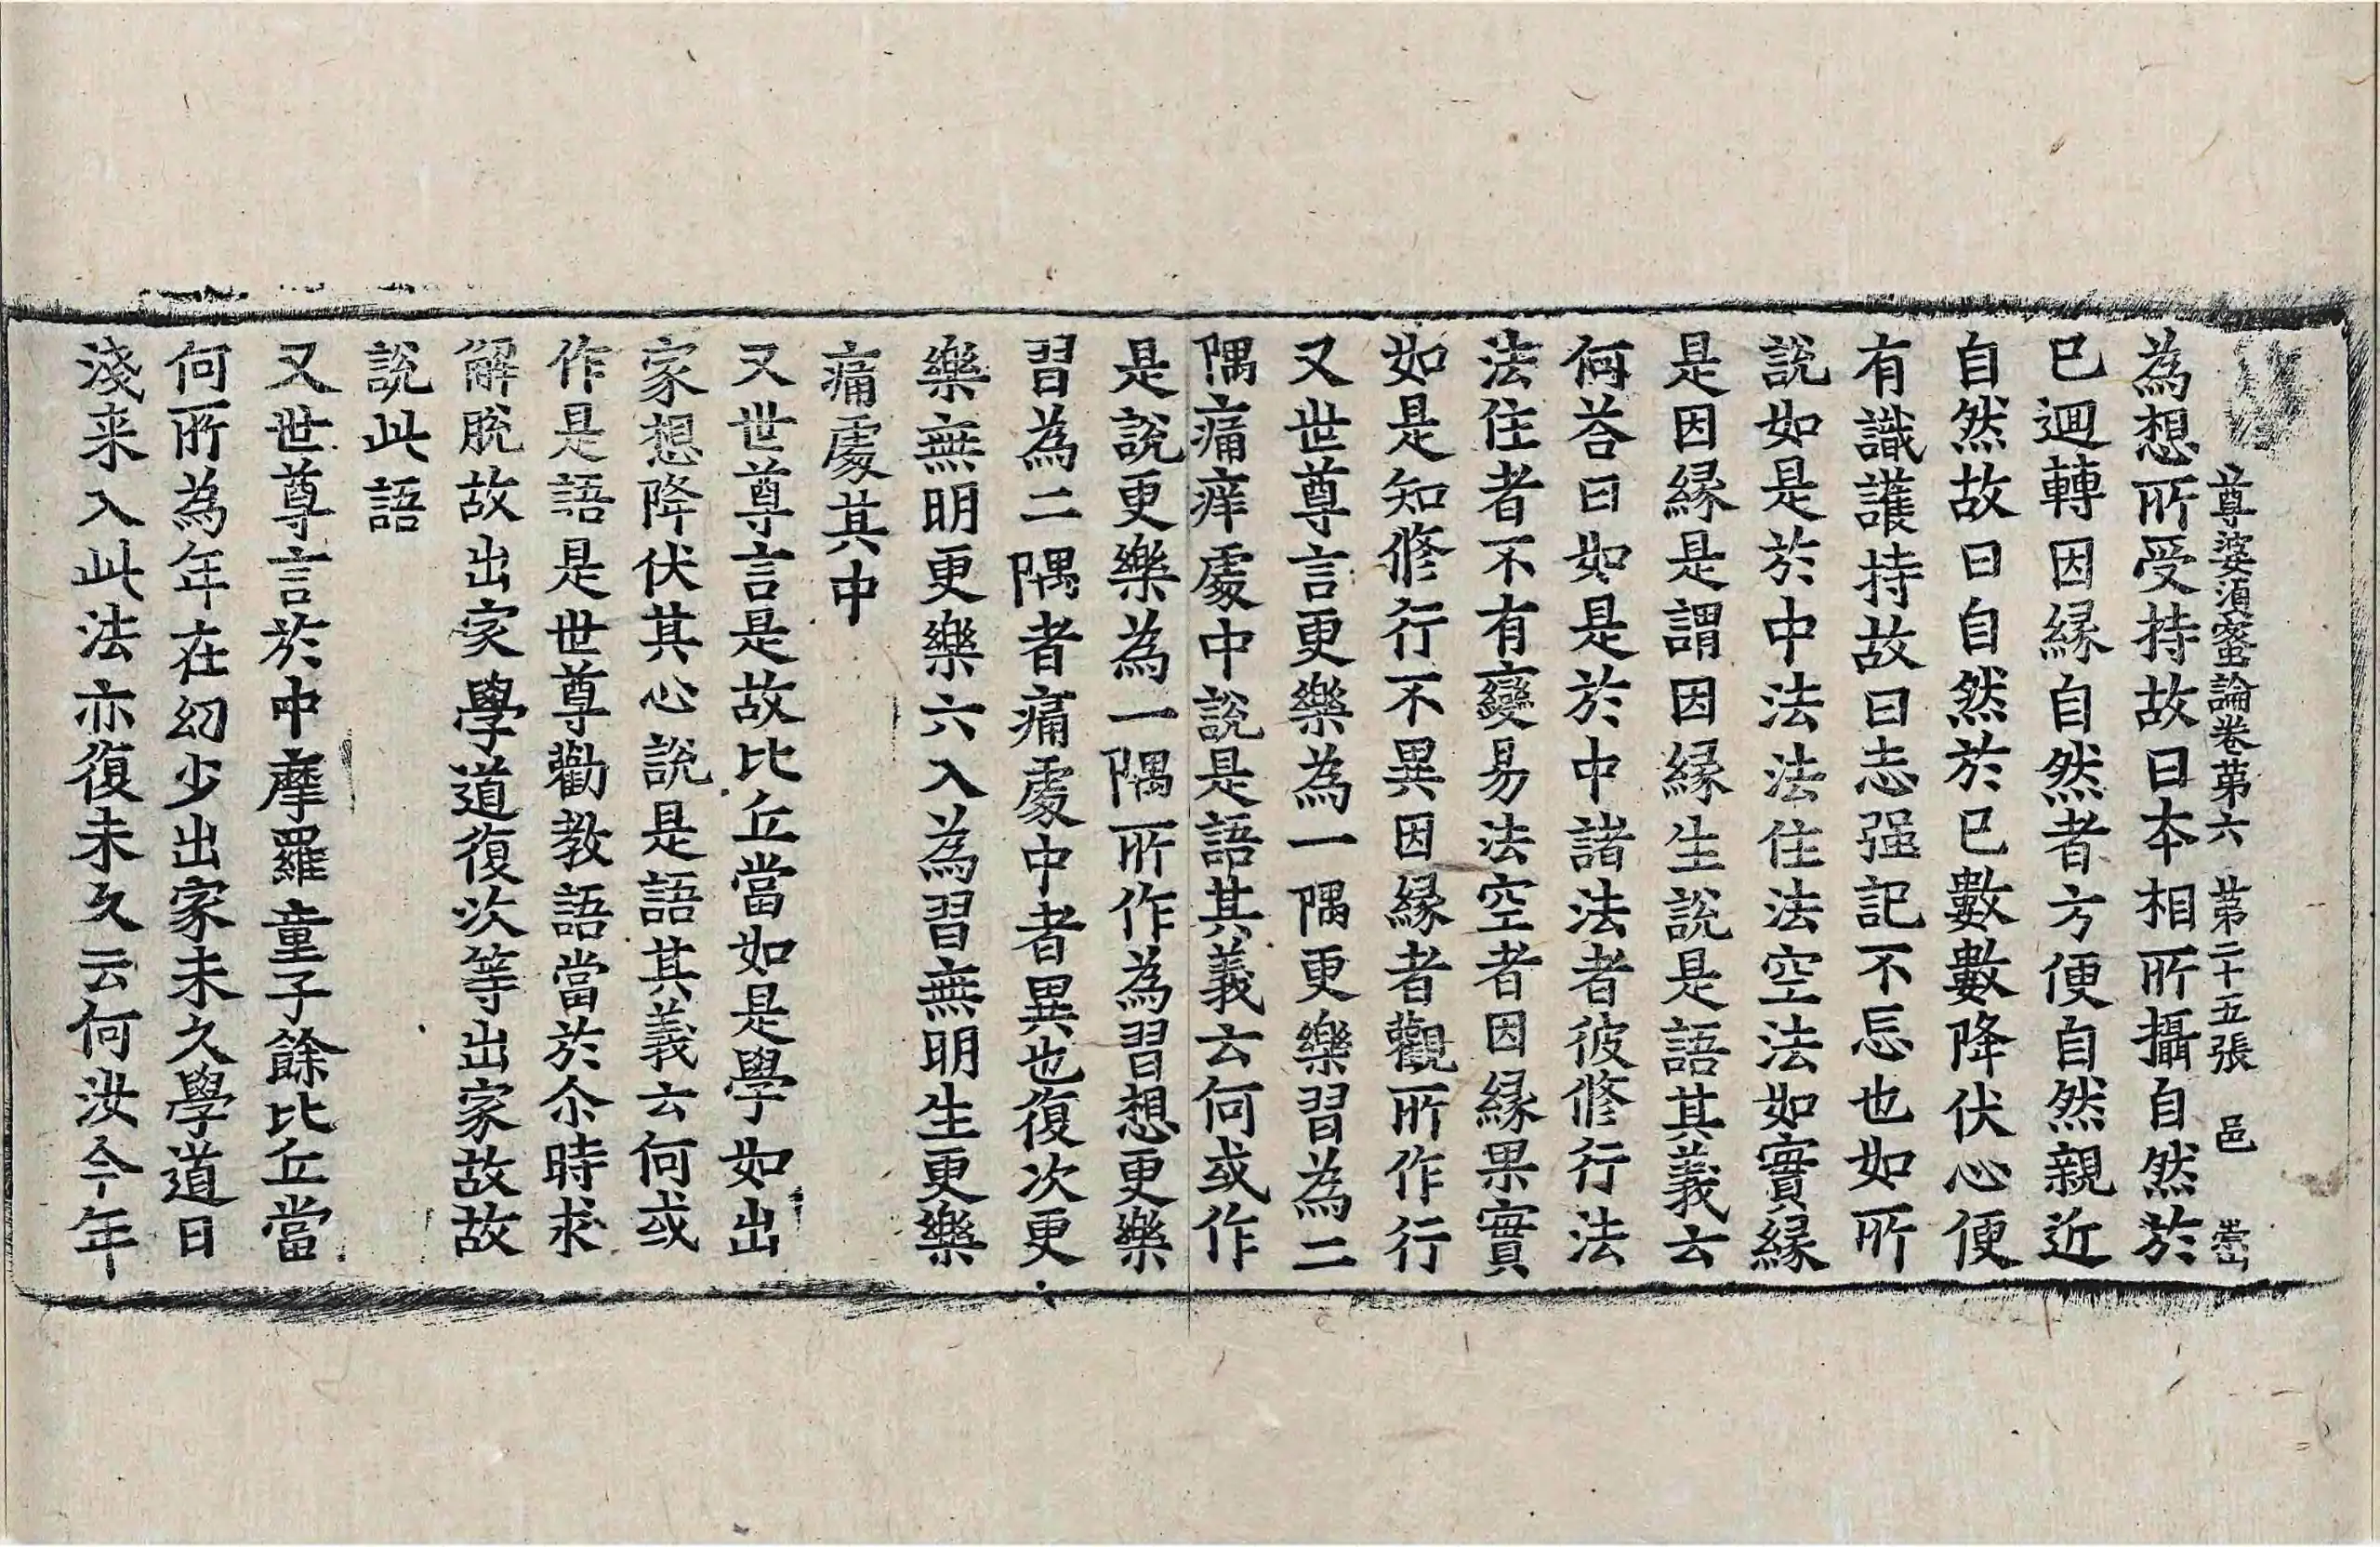 尊婆湏蜜論卷苐六 苐二十五張 邑
為想所受持故曰本相所攝自然於
已迴轉因縁自然者方便自然親近
自然故曰自然於已數數降伏心便
有識護持故曰志强記不忘也如所
說如是於中法法住法空法如實縁
是因縁是謂因縁生說是語其義云
何荅曰如是於中諸法者彼脩行法
法住者不有變易法空者因縁果實
如是知脩行不異因縁者觀所作行
又世尊言更樂為一隅更樂習為二
隅痛痒處中說是語其義云何或作
是說更樂為一隅所作為習想更樂
習為二隅者痛處中者異也復次更
樂無明更樂六入為習無明生更樂
痛處其中
又世尊言是故比丘當如是學如出
家想降伏其心說是語其義云何或
作是語是世尊勸教語當於尒時求
解脫故出家學道復次等出家故故
說此語
又世尊言於中摩羅童子餘比丘當
何所為年在幻少出家未久學道日
淺来入此法亦復未久云何汝今年